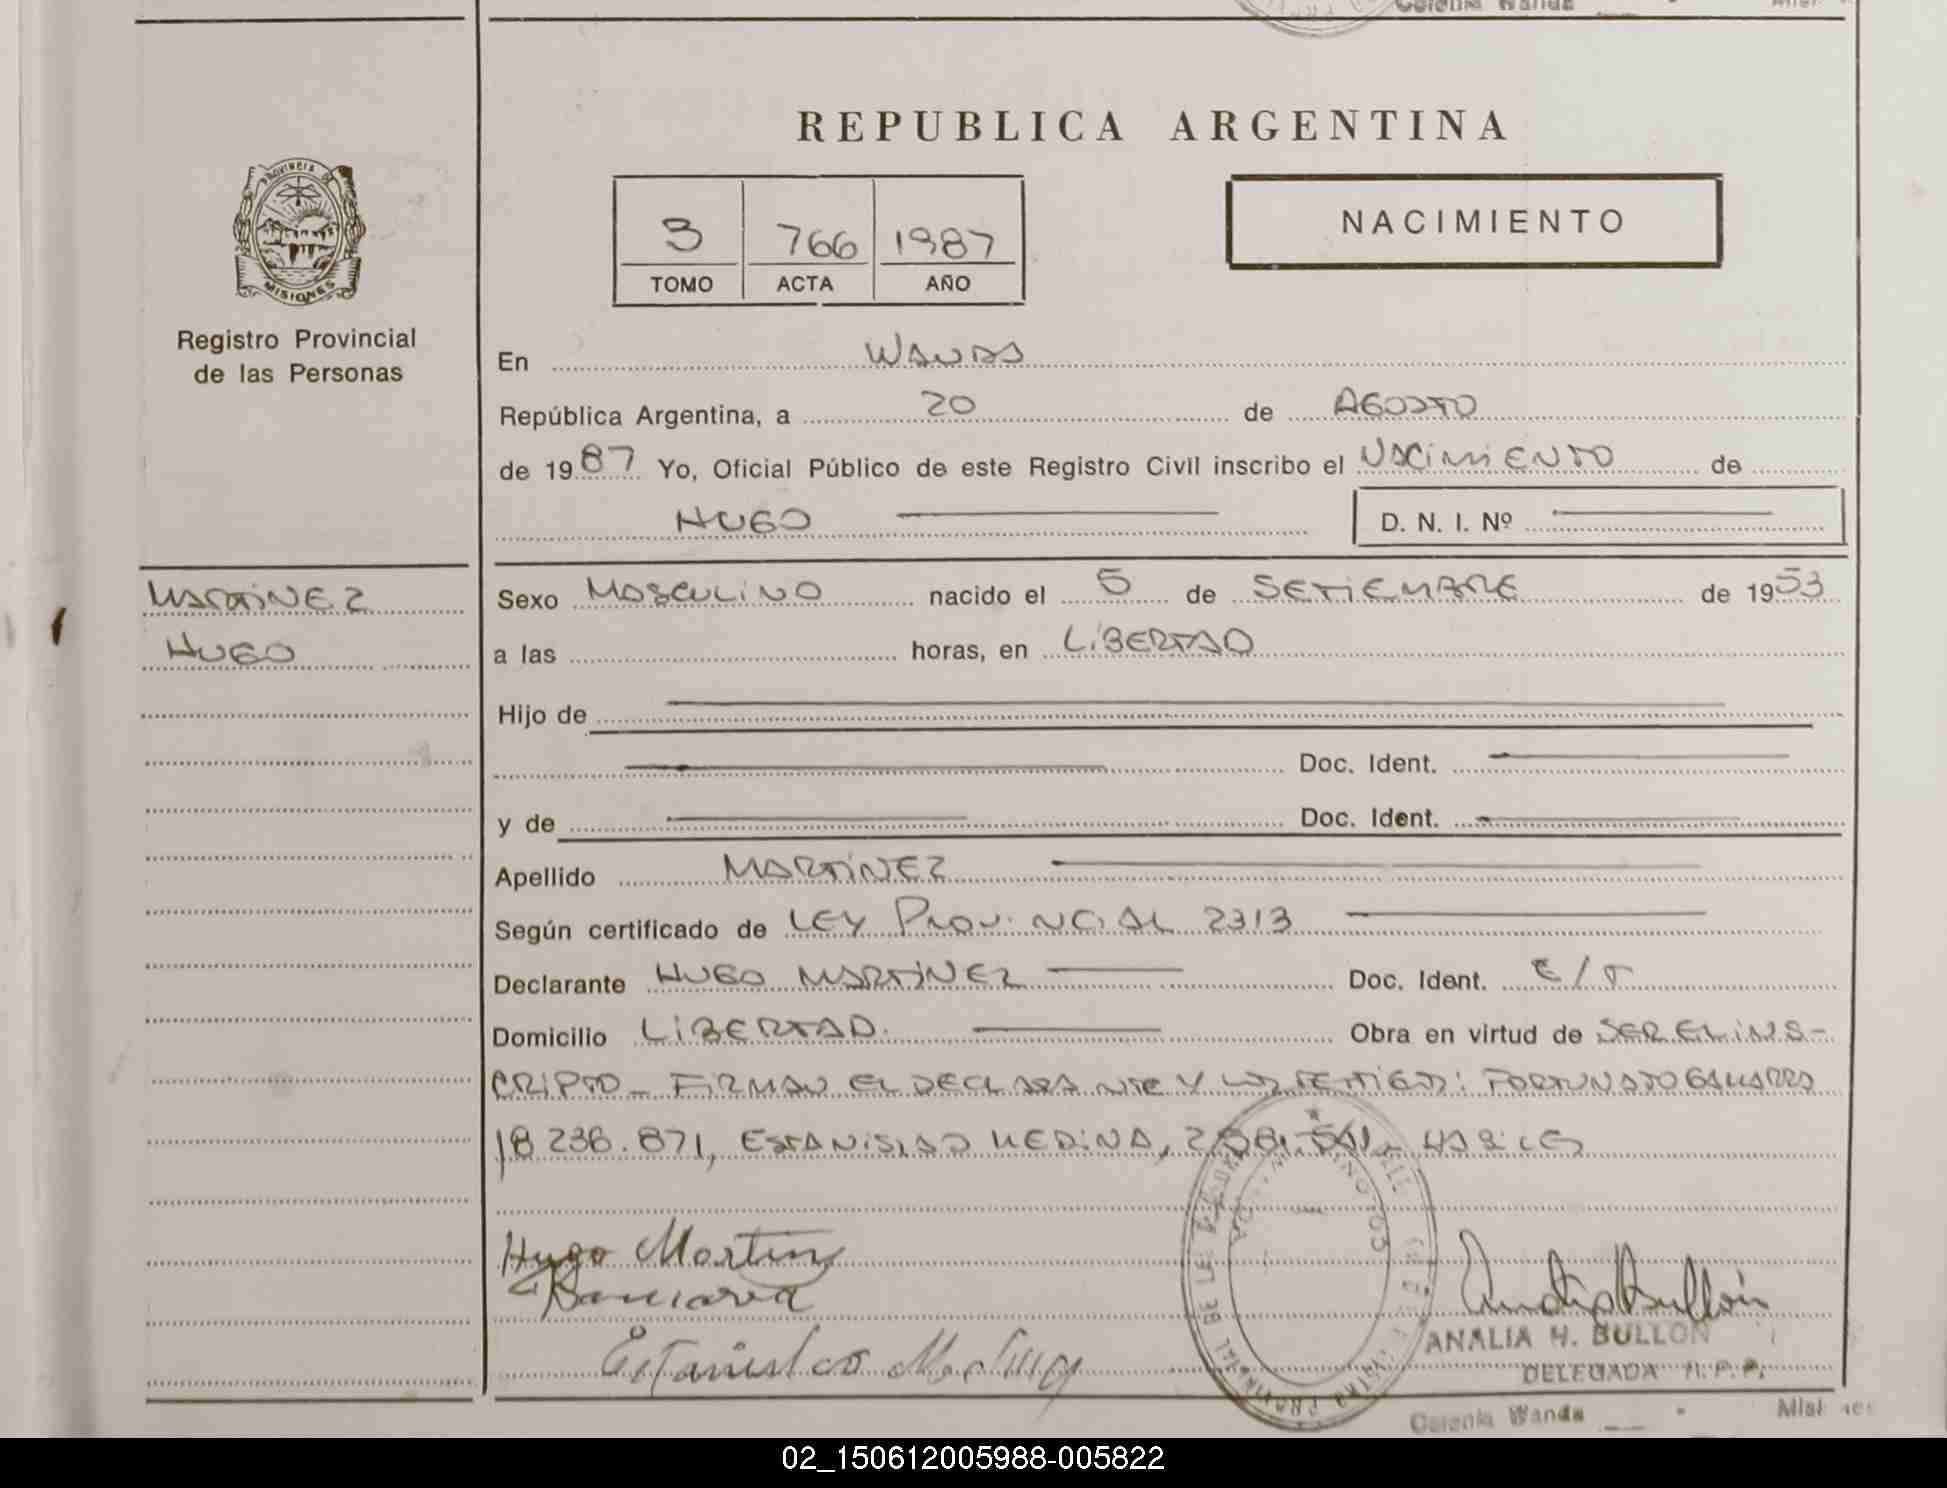 REPUBLICA ARGENTINA
PROVINCIA DE
MISIONES
Registro Provincial
de las Personas
3 766 1987
TOMO ACTA AÑO
NACIMIENTO
En WANDA
República Argentina, a 20 de AGOSTO
de 1987 Yo, Oficial Público de este Registro Civil inscribo el NACIMIENTO de
HUGO D. N. I. Nº
MARTINEZ
HUGO
Sexo MASCULINO nacido el 5 de SETIEMBRE de 1953
a las horas, en LIBERTAD
Hijo de
Doc. Ident.
y de Doc. Ident.
Apellido MARTINEZ
Según certificado de LEY PROVINCIAL 2313
Declarante HUGO MARTINEZ Doc. Ident. E/T
Domicilio LIBERTAD. Obra en virtud de SER EL INS-
CRIPTO - FIRMAN EL DECLARANTE Y LOS TESTIGOS: FORTUNATO
18 236.871, ESTANISLAO MEDINA,
Hugo Martinez
Estanislao Medina
ANALIA H. BULLON
DELEGADA R. P. P.
Colonia Wanda - Misiones
02_150612005988-005822